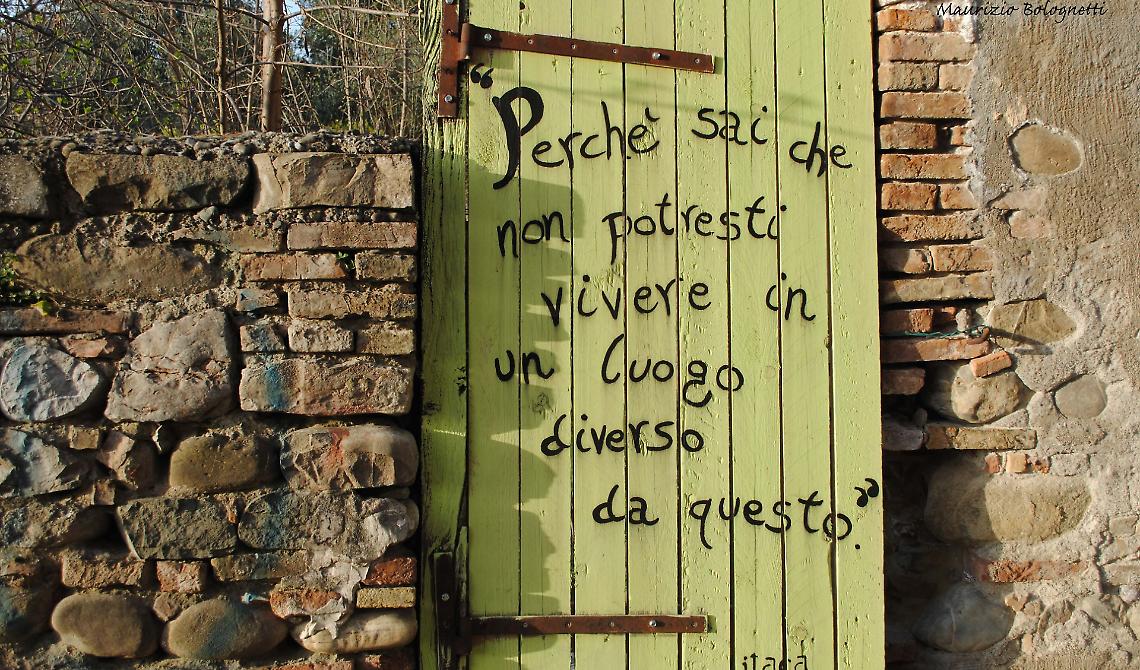 Maurizio Bolognetti
“Perchè sai che
non potresti
vivere in
un luogo
diverso
da questo”.
itaca